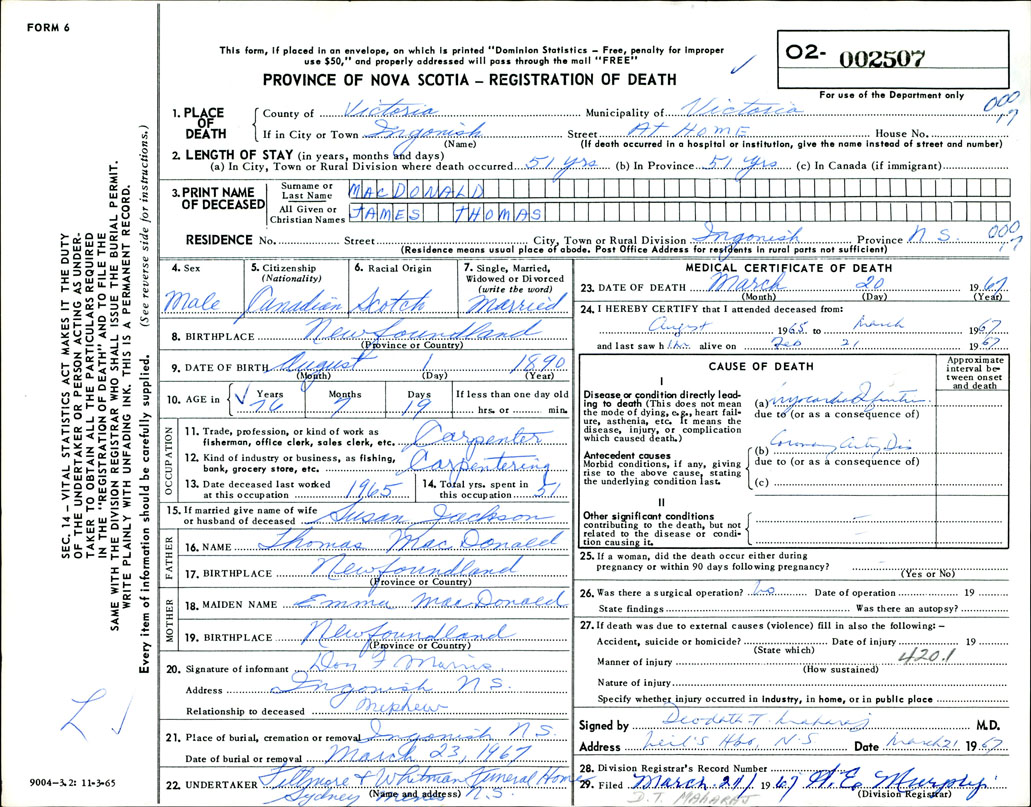 FORM 6
This form, if placed in an envelope, on which is printed "Dominion Statistics – Free, penalty for improper
use $50," and properly addressed will pass through the mail "FREE"
02- 002507
For use of the Department only
PROVINCE OF NOVA SCOTIA – REGISTRATION OF DEATH
000
17
1. PLACE OF DEATH
County of Victoria Municipality of Victoria
If in City or Town Ingonish Street AT HOME House No.
(Name) (If death occurred in a hospital or institution, give the name instead of street and number)
2. LENGTH OF STAY (in years, months and days)
(a) In City, Town or Rural Division where death occurred 51 yrs (b) In Province 51 yrs (c) In Canada (if immigrant)
3. PRINT NAME OF DECEASED
Surname or Last Name MACDONALD
All Given or Christian Names JAMES THOMAS
RESIDENCE No. Street City, Town or Rural Division Ingonish Province N S. 000
17
(Residence means usual place of abode. Post Office Address for residents in rural parts not sufficient)
4. Sex
Male
5. Citizenship
(Nationality)
Canadian
6. Racial Origin
Scotch
7. Single, Married,
Widowed or Divorced
(write the word)
Married
8. BIRTHPLACE Newfoundland
(Province or Country)
9. DATE OF BIRTH August 1 1890
(Month) (Day) (Year)
10. AGE in Years Months Days If less than one day old
76 7 19 hrs. or min.
OCCUPATION
11. Trade, profession, or kind of work as
fisherman, office clerk, sales clerk, etc. Carpenter
12. Kind of industry or business, as fishing,
bank, grocery store, etc. Carpentering
13. Date deceased last worked
at this occupation 1965
14. Total yrs. spent in
this occupation 51
15. If married give name of wife
or husband of deceased Susan Jackson
FATHER
16. NAME Thomas MacDonald
17. BIRTHPLACE Newfoundland
(Province or Country)
MOTHER
18. MAIDEN NAME Emma MacDonald
19. BIRTHPLACE Newfoundland
(Province or Country)
20. Signature of informant Don F Morris
Address Ingonish N S.
Relationship to deceased Nephew
21. Place of burial, cremation or removal Ingonish N S.
Date of burial or removal March 23, 1967
22. UNDERTAKER Fillmore & Whitman Funeral Home
(Name and address)
Sydney N.S.
MEDICAL CERTIFICATE OF DEATH
23. DATE OF DEATH March 20 1967
(Month) (Day) (Year)
24. I HEREBY CERTIFY that I attended deceased from:
August 1965 to March 1967
and last saw him alive on Feb 21 1967
CAUSE OF DEATH
Approximate
interval be-
tween onset
and death
I
Disease or condition directly lead-
ing to death (This does not mean
the mode of dying, e.g., heart fail-
ure, asthenia, etc. It means the
disease, injury, or complication
which caused death.)
(a)
due to (or as a consequence of)
Antecedent causes
Morbid conditions, if any, giving
rise to the above cause, stating
the underlying condition last.
(b) Coronary Artery Dis
due to (or as a consequence of)
(c)
II
Other significant conditions
contributing to the death, but not
related to the disease or condi-
tion causing it.
25. If a woman, did the death occur either during
pregnancy or within 90 days following pregnancy?
(Yes or No)
26. Was there a surgical operation? No Date of operation 19
State findings Was there an autopsy?
27. If death was due to external causes (violence) fill in also the following: –
Accident, suicide or homicide? Date of injury 19
(State which)
Manner of injury 420.1
(How sustained)
Nature of injury
Specify whether injury occurred in industry, in home, or in public place
Signed by Deodath T. Maharaj M.D.
Address Neil's Hbo, N-S Date March 21 1967
28. Division Registrar's Record Number
29. Filed March 21 1967 W. E. Murphy
(Division Registrar)
D. T. MAHARAJ
SEC. 14 – VITAL STATISTICS ACT MAKES IT THE DUTY
OF THE UNDERTAKER OR PERSON ACTING AS UNDER-
TAKER TO OBTAIN ALL THE PARTICULARS REQUIRED
IN THE "REGISTRATION OF DEATH" AND TO FILE THE
SAME WITH THE DIVISION REGISTRAR WHO SHALL ISSUE THE BURIAL PERMIT.
WRITE PLAINLY WITH UNFADING INK. THIS IS A PERMANENT RECORD.
Every item of information should be carefully supplied. (See reverse side for instructions.)
9004–3.2: 11-3-65